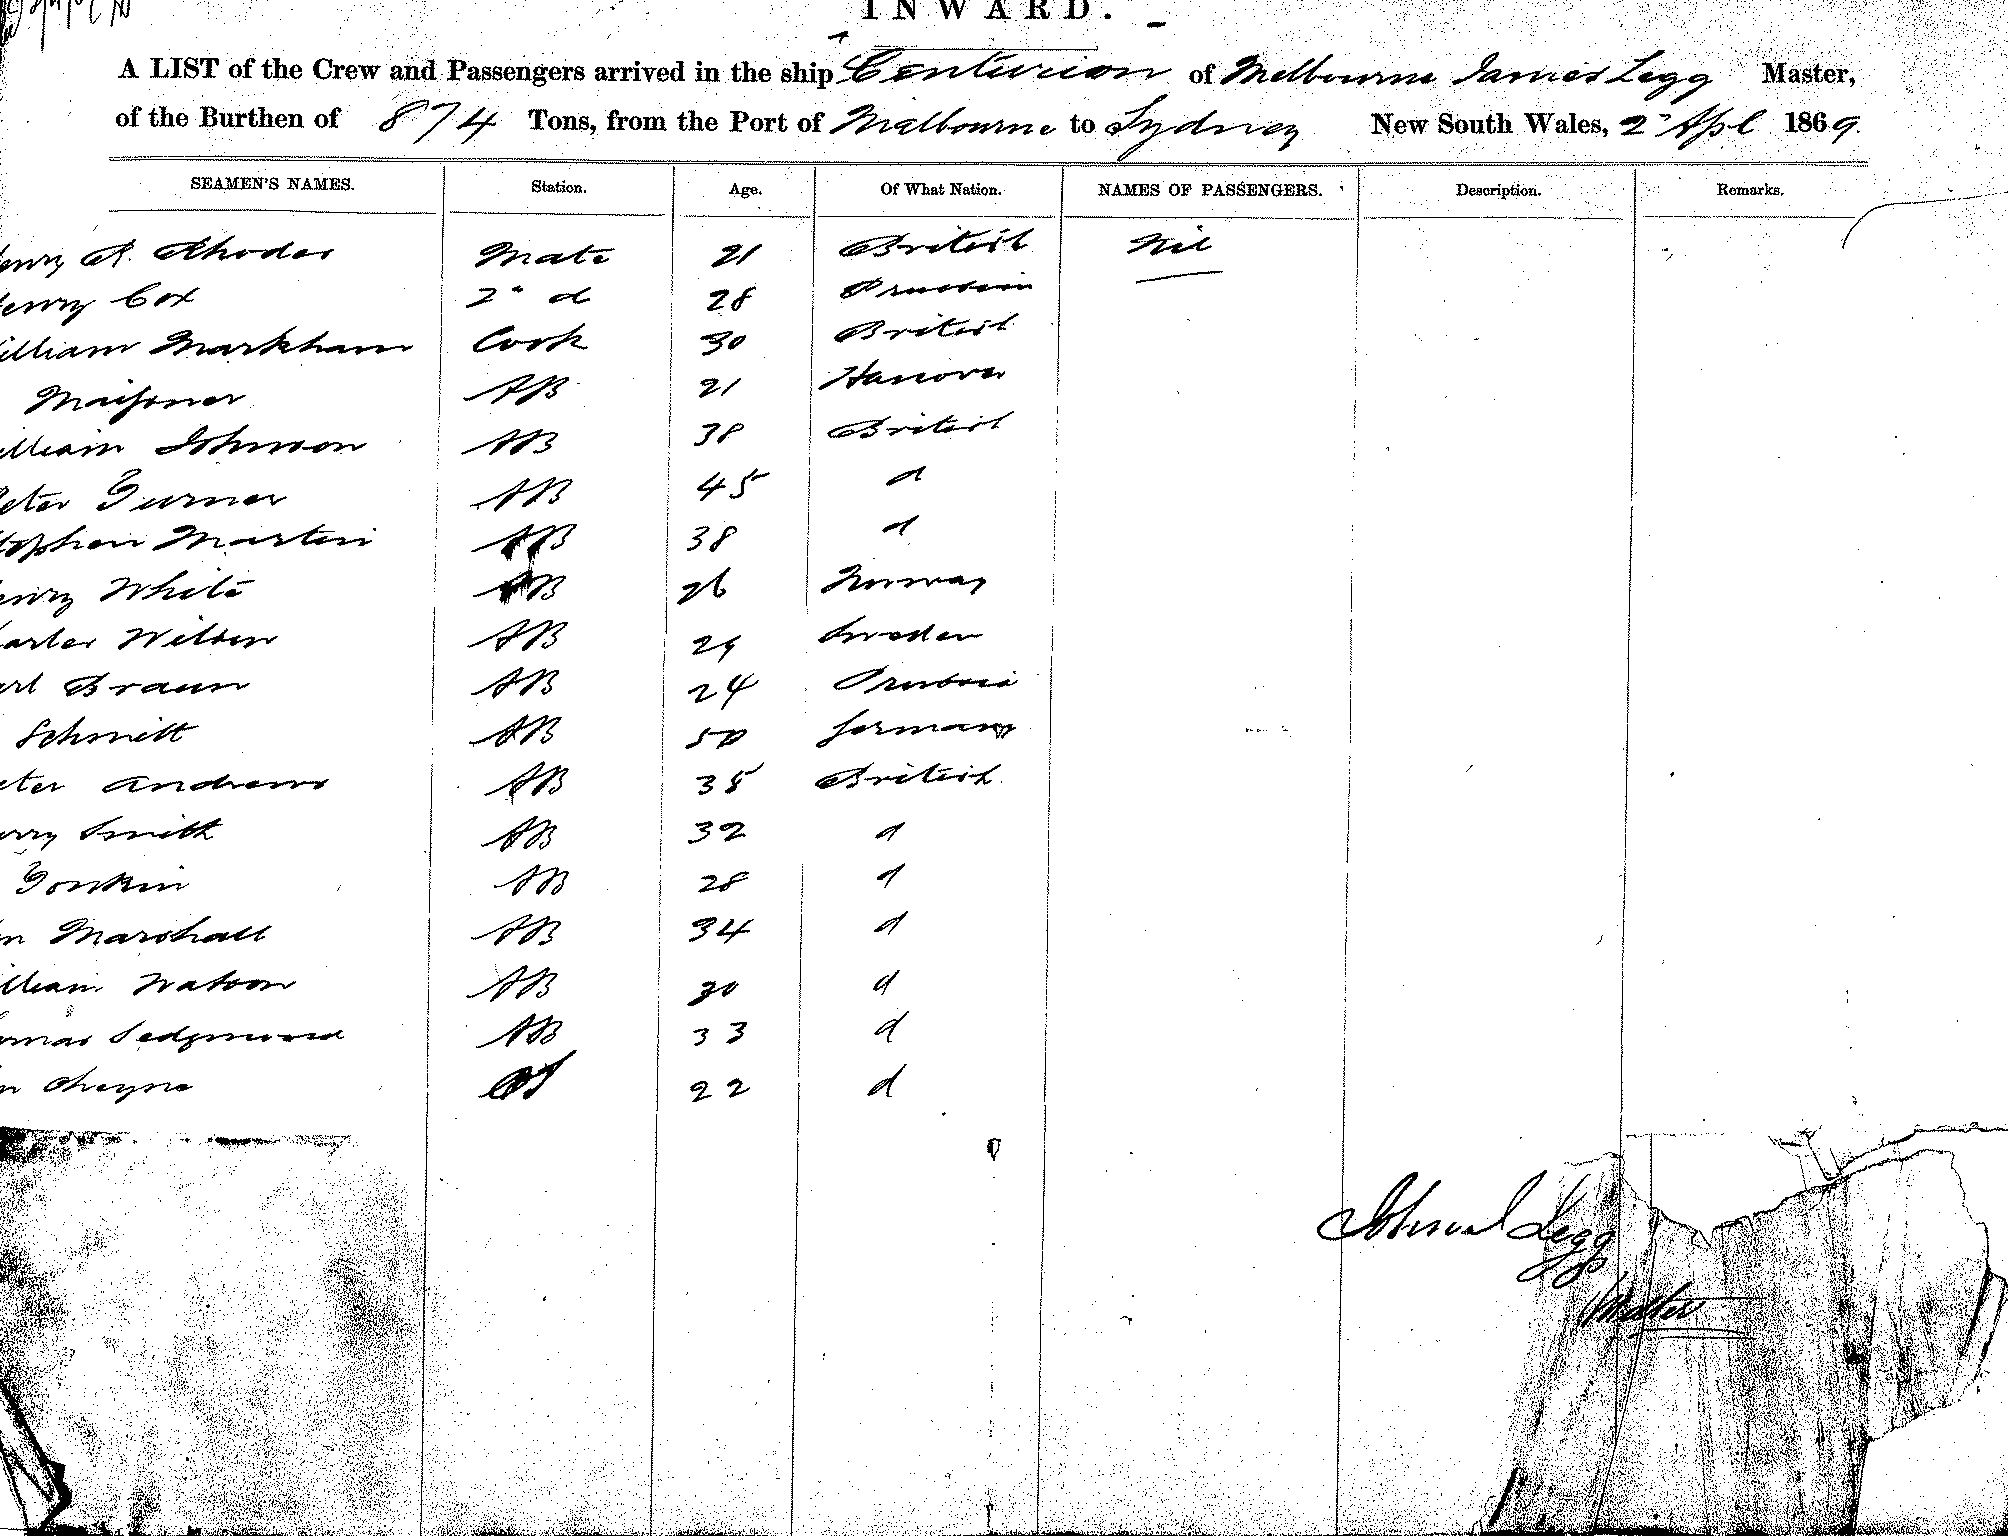 INWARD.
A LIST of the Crew and Passengers arrived in the ship Centurion of Melbourne James Legg Master,
of the Burthen of 874 Tons, from the Port of Melbourne to Sydney New South Wales, 2 Apl 1869.
SEAMEN'S NAMES. Station. Age. Of What Nation. NAMES OF PASSENGERS. Description. Remarks.
enry R. Rhodes Mate 21 British Nil
enry Cox 2" d 28 Prussian
illiam Markham Cook 30 British
AB 21 Hanover
illiam Johnson AB 38 British
eter Turner AB 45 d
tephen Martin AB 38 d
enry White AB 26 Norway
harles Wilson AB 29 Sweden
arl Braun AB 24 Prussia
Schmitt AB 50 Germany
eter Andrews AB 38 British
enry Smith AB 32 d
Tonkin AB 28 d
hn Marshall AB 34 d
illiam Watson AB 30 d
omas Sedgmwood AB 33 d
hn Cheyne OS 22 d
Legg
Master